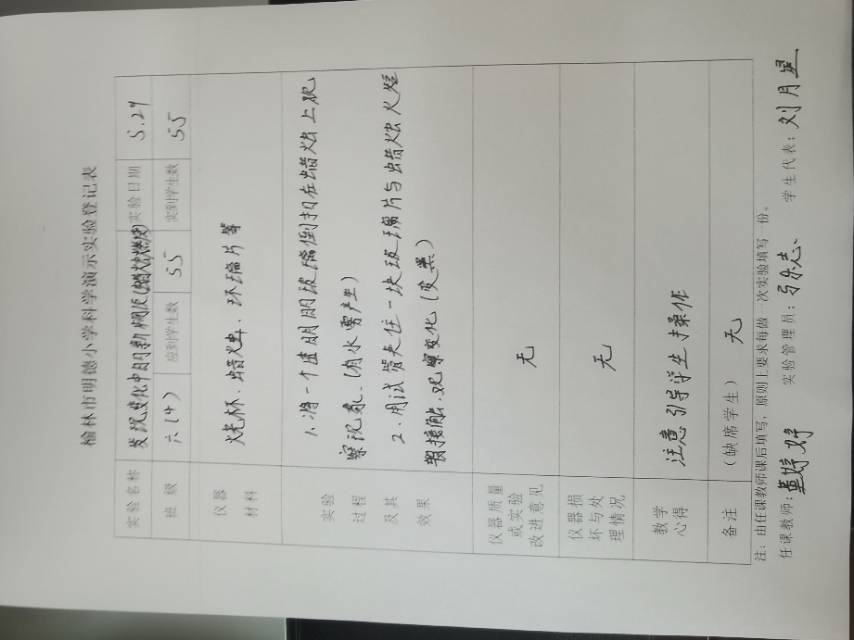 榆林市明德小学科学演示实验登记表
实验名称 发现变化中的新物质(蜡烛燃烧) 实验日期 5.29
班级 六(4) 应到学生数 55 实到学生数 55
仪器 材料 烧杯、蜡烛、玻璃片等
实验 过程 及其 效果
1.将一个透明的玻璃倒扣在蜡烛上观
察现象、(有水雾产生)
2.用试管夹住一块玻璃片与蜡烛火焰
接触、观察变化(发黑)
仪器质量 或实验 改进意见 无
仪器损 坏与处 理情况 无
教学 心得 注意引导学生操作
备注 (缺席学生) 无
注:由任课教师课后填写,原则上要求每做一次实验填写一份。
任课教师:婷好 实验管理员: 学生代表:刘月